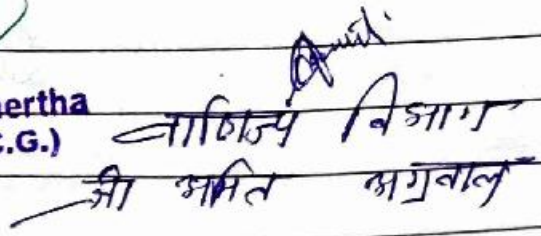 ertha
.G.)
वाणिज्य विभाग
श्री अमित अग्रवाल